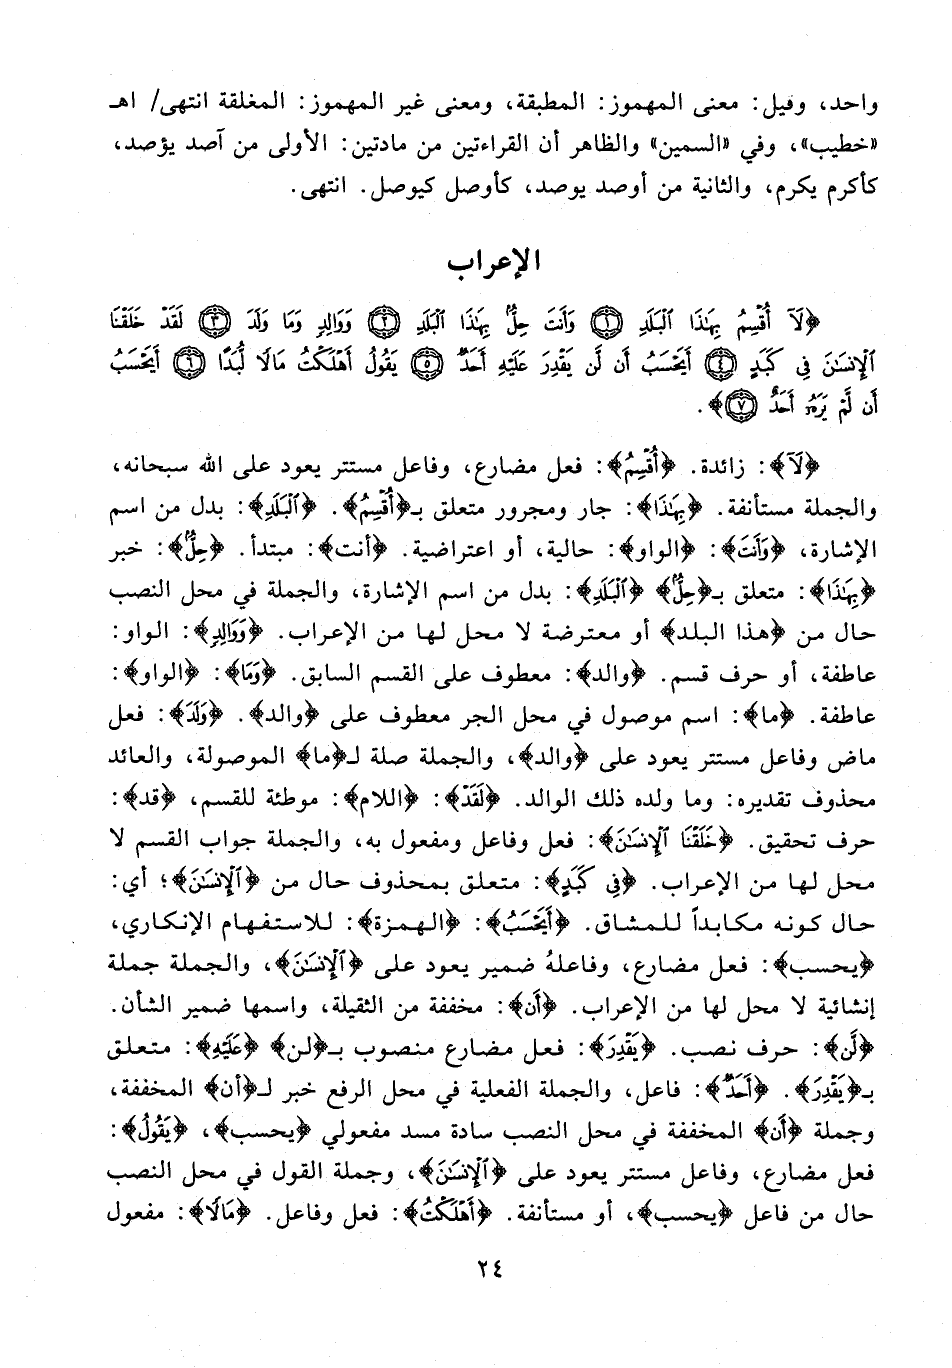 واحد، وقيل: معنى المهموز: المطبقة، ومعنى غير المهموز: المغلقة انتهى/ اهـ
«خطيب»، وفي «السمين» والظاهر أن القراءتين من مادتين: الأولى من آصد يؤصد،
كأكرم يكرم، والثانية من أوصد يوصد، كأوصل كيوصل. انتهى.
الإعراب
﴿لَآ أُقْسِمُ بِهَٰذَا ٱلْبَلَدِ ١ وَأَنتَ حِلٌّۢ بِهَٰذَا ٱلْبَلَدِ ٢ وَوَالِدٍ وَمَا وَلَدَ ٣ لَقَدْ خَلَقْنَا
ٱلْإِنسَٰنَ فِى كَبَدٍ ٤ أَيَحْسَبُ أَن لَّن يَقْدِرَ عَلَيْهِ أَحَدٌ ٥ يَقُولُ أَهْلَكْتُ مَالًا لُّبَدًا ٦ أَيَحْسَبُ
أَن لَّمْ يَرَهُۥٓ أَحَدٌ ٧﴾.
﴿لَآ﴾: زائدة. ﴿أُقْسِمُ﴾: فعل مضارع، وفاعل مستتر يعود على الله سبحانه،
والجملة مستأنفة. ﴿بِهَٰذَا﴾: جار ومجرور متعلق بـ﴿أُقْسِمُ﴾. ﴿ٱلْبَلَدِ﴾: بدل من اسم
الإشارة، ﴿وَأَنتَ﴾: ﴿الواو﴾: حالية، أو اعتراضية. ﴿أنت﴾: مبتدأ. ﴿حِلٌّۢ﴾: خبر
﴿بِهَٰذَا﴾: متعلق بـ﴿حِلٌّۢ﴾ ﴿ٱلْبَلَدِ﴾: بدل من اسم الإشارة، والجملة في محل النصب
حال من ﴿هذا البلد﴾ أو معترضة لا محل لها من الإعراب. ﴿وَوَالِدٍ﴾: الواو:
عاطفة، أو حرف قسم. ﴿والد﴾: معطوف على القسم السابق. ﴿وَمَا﴾: ﴿الواو﴾:
عاطفة. ﴿ما﴾: اسم موصول في محل الجر معطوف على ﴿والد﴾. ﴿وَلَدَ﴾: فعل
ماض وفاعل مستتر يعود على ﴿والد﴾، والجملة صلة لـ﴿ما﴾ الموصولة، والعائد
محذوف تقديره: وما ولده ذلك الوالد. ﴿لَقَدْ﴾: ﴿اللام﴾: موطئة للقسم، ﴿قد﴾:
حرف تحقيق. ﴿خَلَقْنَا ٱلْإِنسَٰنَ﴾: فعل وفاعل ومفعول به، والجملة جواب القسم لا
محل لها من الإعراب. ﴿فِى كَبَدٍ﴾: متعلق بمحذوف حال من ﴿ٱلْإِنسَٰنَ﴾؛ أي:
حال كونه مكابداً للمشاق. ﴿أَيَحْسَبُ﴾: ﴿الهمزة﴾: للاستفهام الإنكاري،
﴿يحسب﴾: فعل مضارع، وفاعلهُ ضمير يعود على ﴿ٱلْإِنسَٰنَ﴾، والجملة جملة
إنشائية لا محل لها من الإعراب. ﴿أَن﴾: مخففة من الثقيلة، واسمها ضمير الشأن.
﴿لَّن﴾: حرف نصب. ﴿يَقْدِرَ﴾: فعل مضارع منصوب بـ﴿لن﴾ ﴿عَلَيْهِ﴾: متعلق
بـ﴿يَقْدِرَ﴾. ﴿أَحَدٌ﴾: فاعل، والجملة الفعلية في محل الرفع خبر لـ﴿أن﴾ المخففة،
وجملة ﴿أَن﴾ المخففة في محل النصب سادة مسد مفعولي ﴿يحسب﴾، ﴿يَقُولُ﴾:
فعل مضارع، وفاعل مستتر يعود على ﴿ٱلْإِنسَٰنَ﴾، وجملة القول في محل النصب
حال من فاعل ﴿يحسب﴾، أو مستأنفة. ﴿أَهْلَكْتُ﴾: فعل وفاعل. ﴿مَالًا﴾: مفعول
٢٤